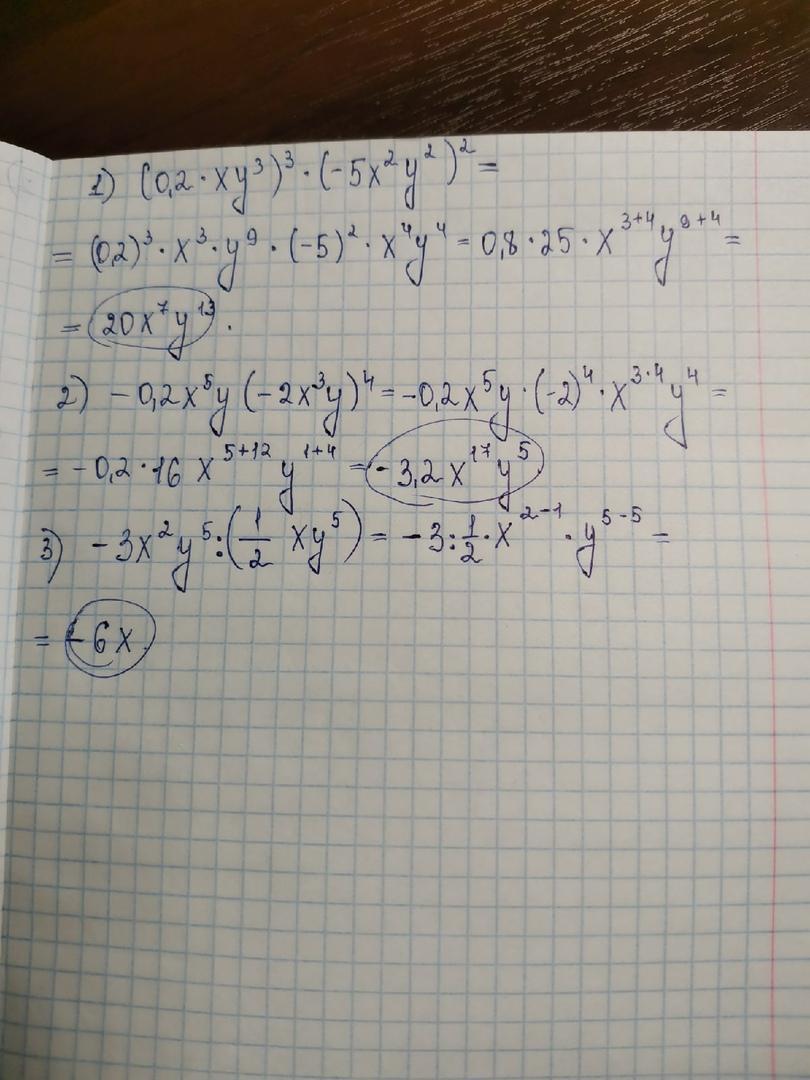 1) (0,2 · xy³)³ · (-5x²y²)² =
= (0,2)³ · x³ · y⁹ · (-5)² · x⁴y⁴ = 0,8 · 25 · x³⁺⁴y⁹⁺⁴ =
= 20x⁷y¹³.
2) - 0,2x⁵y (-2x³y)⁴ = -0,2x⁵y · (-2)⁴ · x³·⁴y⁴ =
= - 0,2 · 16 x⁵⁺¹²y¹⁺⁴ = - 3,2x¹⁷y⁵
3) - 3x²y⁵ : (1/2 xy⁵) = - 3 : 1/2 · x²⁻¹ · y⁵⁻⁵ =
= - 6x